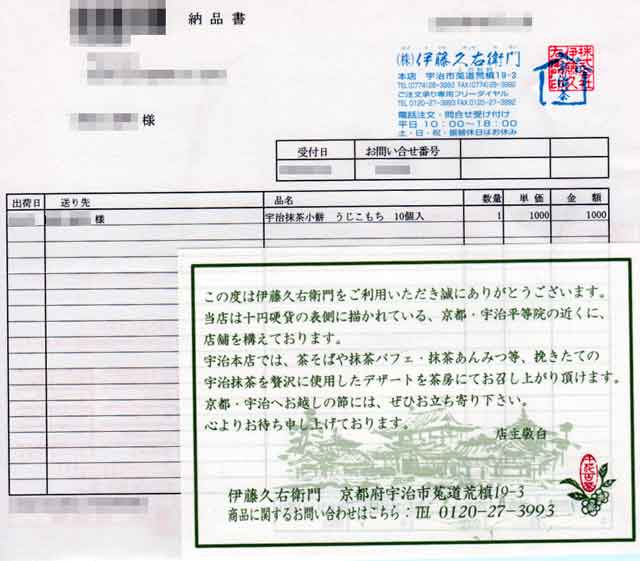 納品書
(株)伊藤久右衛門
本店 宇治市莵道荒槙19-3
TEL(0774)28-3993 FAX(0774)28-3992
ご注文承り専用フリーダイヤル
TEL0120-27-3993 FAX0120-27-3992
電話注文・問合せ受け付け
平日 10:00~18:00
土・日・祝・振替休日はお休み
様
受付日 お問い合せ番号
出荷日 送り先 品名 数量 単価 金額
様 宇治抹茶小餅 うじこもち 10個入 1 1000 1000
この度は伊藤久右衛門をご利用いただき誠にありがとうございます。
当店は十円硬貨の表側に描かれている、京都・宇治平等院の近くに、
店舗を構えております。
宇治本店では、茶そばや抹茶パフェ・抹茶あんみつ等、挽きたての
宇治抹茶を贅沢に使用したデザートを茶房にてお召し上がり頂けます。
京都・宇治へお越しの節には、ぜひお立ち寄り下さい。
心よりお待ち申し上げております。
店主敬白
伊藤久右衛門 京都府宇治市莵道荒槙19-3
商品に関するお問い合わせはこちら:TEL 0120-27-3993